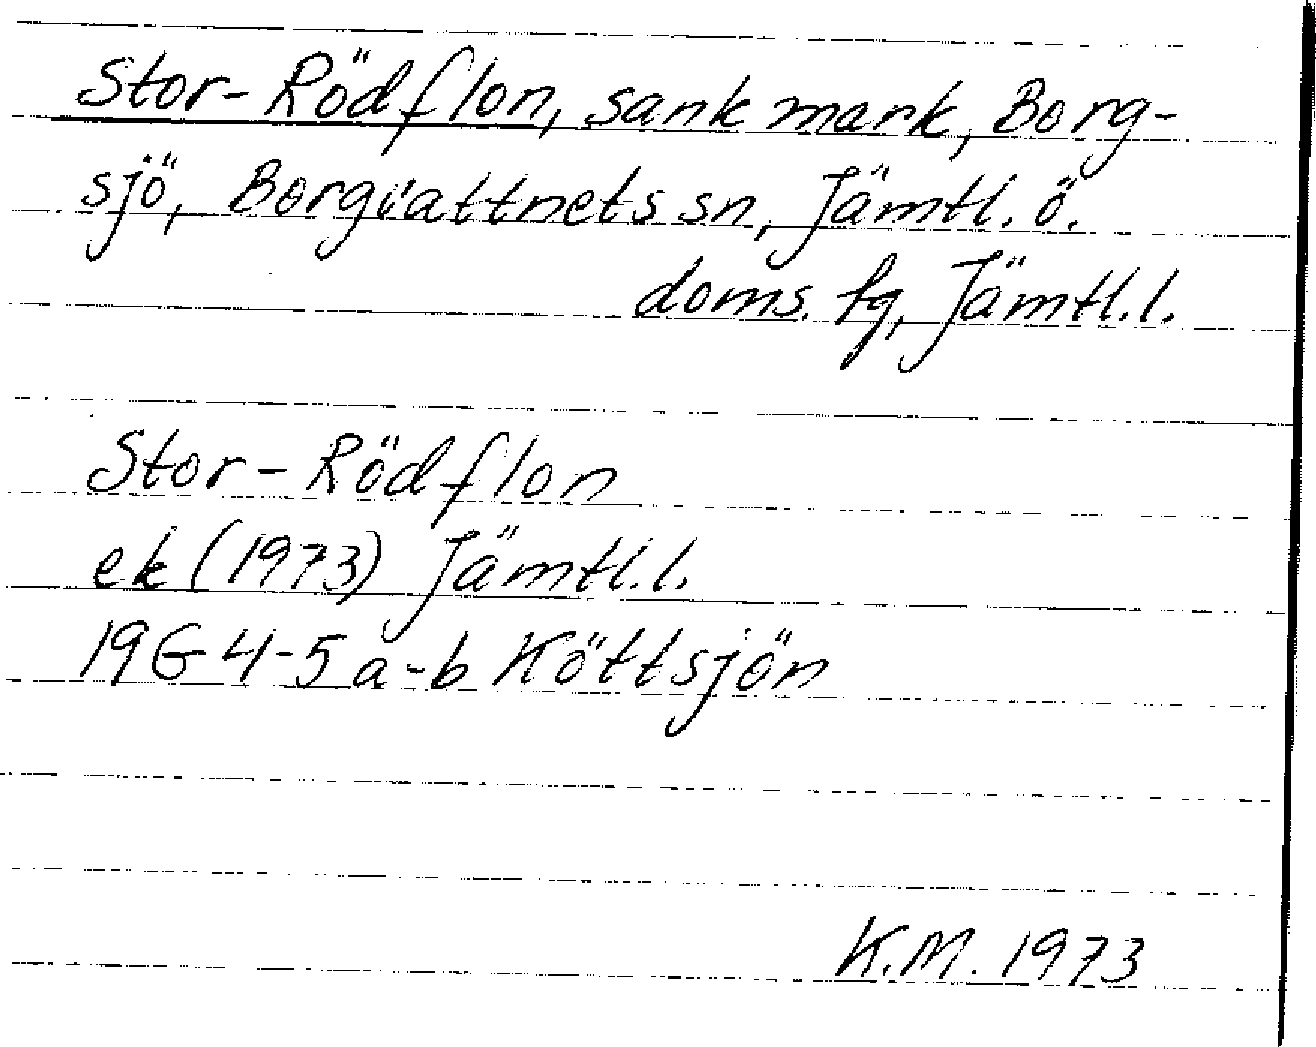 Stor-Rödflon, sank mark, Borg-
sjö, Borgvattnets sn, Jämtl. ö.
doms. fg, Jämtl.l.
Stor-Rödflon
ek (1973) Jämtl.l.
19G 4-5 a-b Köttsjön
K.M. 1973